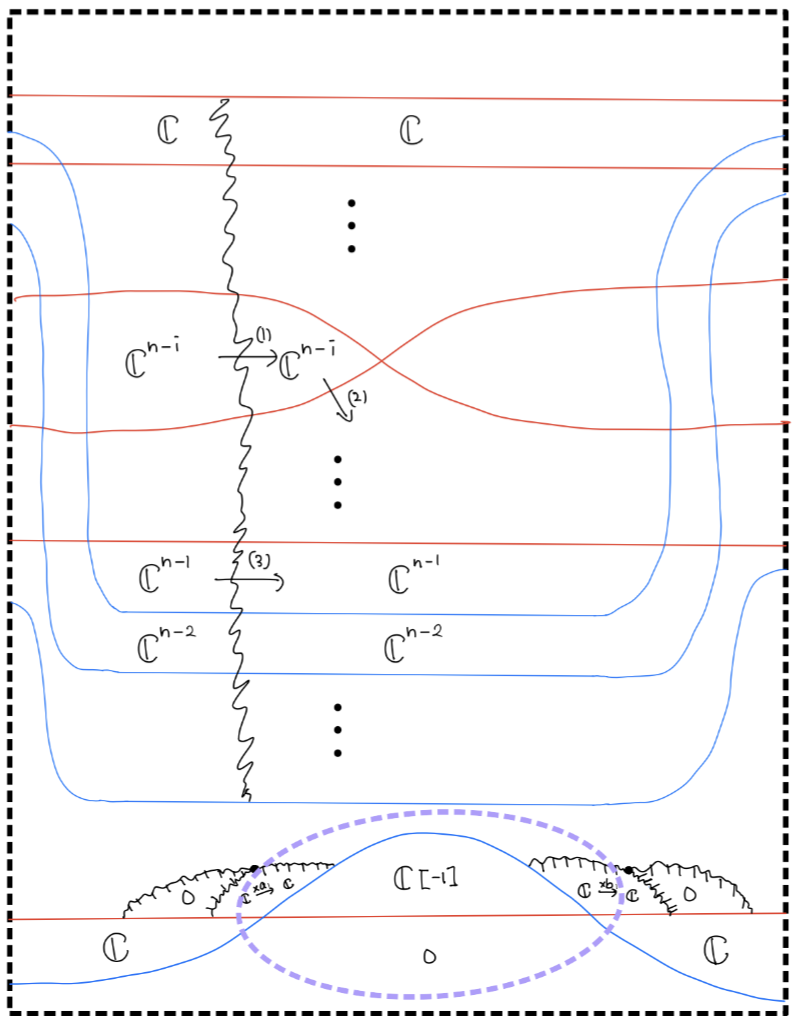 ℂ ℂ
ℂⁿ⁻ⁱ (1) ℂⁿ⁻ⁱ
(2)
ℂⁿ⁻¹ (3) ℂⁿ⁻¹
ℂⁿ⁻² ℂⁿ⁻²
0 ℂ ×a→ ℂ ℂ[-1] ℂ ×b→ ℂ 0
ℂ 0 ℂ